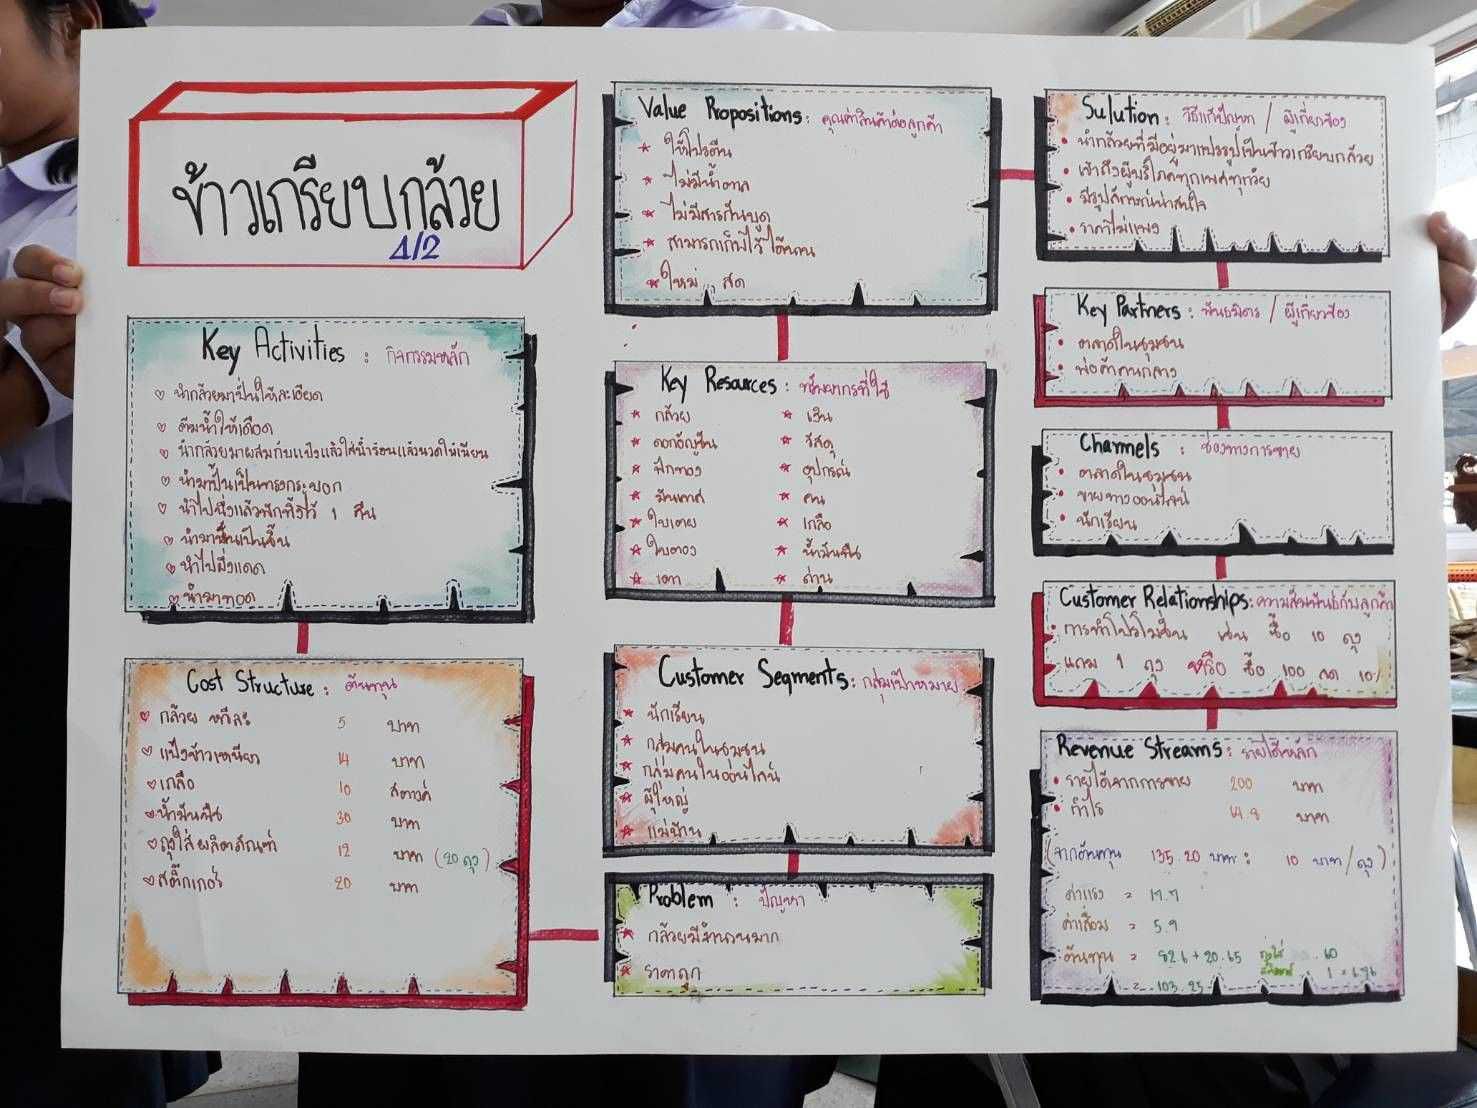 ข้าวเกรียบกล้วย
4/2
Key Activities : กิจกรรมหลัก
นำกล้วยมาปั่นให้ละเอียด
ต้มน้ำให้เดือด
นำกล้วยมาผสมกับแป้งแล้วใส่น้ำร้อนแล้วนวดให้เนียน
นำมาปั้นเป็นทรงกระบอก
นำไปนึ่งแล้วพักทิ้งไว้ 1 คืน
นำมาหั่นเป็นชิ้น
นำไปผึ่งแดด
นำมาทอด
Cost Structure : ต้นทุน
กล้วย หวีละ 5 บาท
แป้งข้าวเหนียว 14 บาท
เกลือ 10 สตางค์
น้ำมันพืช 30 บาท
ถุงใส่ผลิตภัณฑ์ 12 บาท (20 ถุง)
สติ๊กเกอร์ 20 บาท
Value Propositions : คุณค่าสินค้าต่อลูกค้า
ให้โปรตีน
ไม่มีน้ำตาล
ไม่มีสารกันบูด
สามารถเก็บไว้ได้นาน
ใหม่ , สด
Key Resources : ทรัพยากรที่ใช้
กล้วย เงิน
ดอกอัญชัน วัสดุ
ฟักทอง อุปกรณ์
มันเทศ คน
ใบเตย เกลือ
ใบตอง น้ำมันพืช
เตา ถ่าน
Customer Segments : กลุ่มเป้าหมาย
นักเรียน
กลุ่มคนในชุมชน
กลุ่มคนในออนไลน์
ผู้ใหญ่
แม่บ้าน
Problem : ปัญหา
กล้วยมีจำนวนมาก
ราคาถูก
Sulution : วิธีแก้ปัญหา / ผู้เกี่ยวข้อง
นำกล้วยที่มีอยู่มาแปรรูปเป็นข้าวเกรียบกล้วย
เข้าถึงผู้บริโภคทุกเพศทุกวัย
มีรูปลักษณ์น่าสนใจ
ราคาไม่แพง
Key Partners : พันธมิตร / ผู้เกี่ยวข้อง
ตลาดในชุมชน
พ่อค้าคนกลาง
Channels : ช่องทางการขาย
ตลาดในชุมชน
ขายทางออนไลน์
นักเรียน
Customer Relationships : ความสัมพันธ์กับลูกค้า
การทำโปรโมชั่น เช่น ซื้อ 10 ถุง
แถม 1 ถุง หรือ ซื้อ 100 ลด 10%
Revenue Streams : รายได้หลัก
รายได้จากการขาย 200 บาท
กำไร 64.8 บาท
(จากต้นทุน 135.20 บาท : 10 บาท/ถุง)
ค่าแรง = 17.7
ค่าเสื่อม = 5.9
ต้นทุน = 82.6 + 20.65
= 103.25